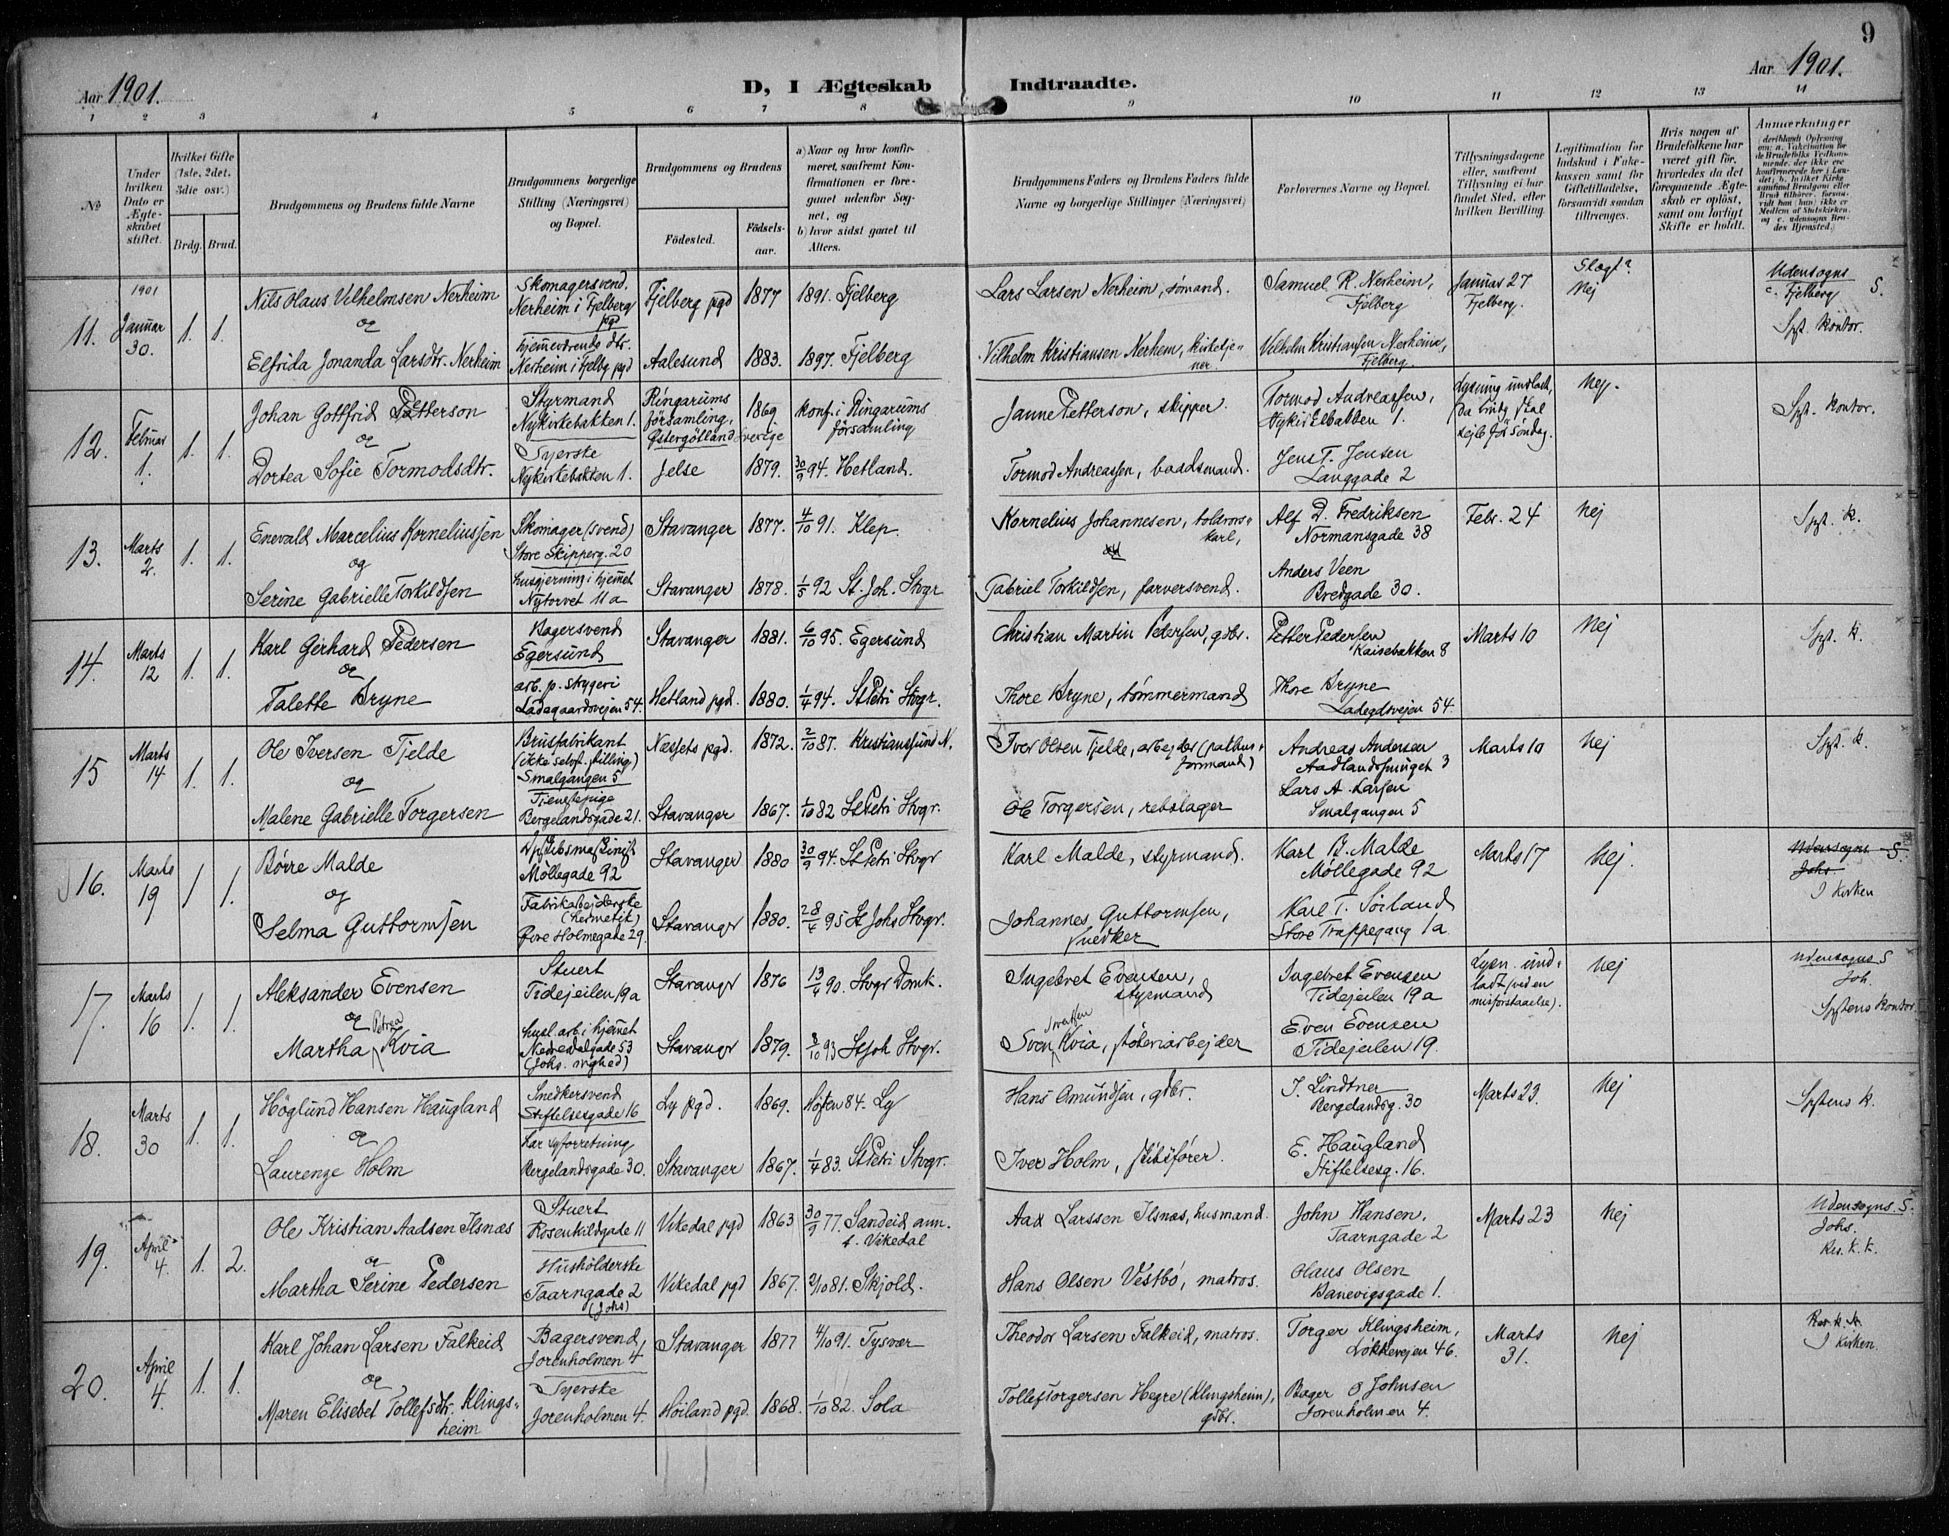 9
Aar 1901.
D, I Ægteskab Indtraadte.
Aar 1901.
1 2 3 4 5 6 7 8 9 10 11 12 13 14
No
Under hvilken Dato er Ægteskabet stiftet.
Hvilket Gifte (1ste, 2det, 3die osv.)
Brdg. Brud.
Brudgommens og Brudens fulde Navne
Brudgommens borgerlige Stilling (Næringsvei) og Bopæl.
Brudgommens og Brudens
Fødested.
Fødselsaar.
a) Naar og hvor konfirmeret, saafremt Konfirmationen er foregaaet udenfor Sognet, og
b) hvor sidst gaaet til Alters.
Brudgommens Faders og Brudens Faders fulde Navne og borgerlige Stillinger (Næringsvei)
Forlovernes Navne og Bopæl.
Tillysningsdagene eller, saafremt Tillysning ei har fundet Sted, efter hvilken Bevilling.
Legitimation for Indskud i Enkekassen samt for Giftetilladelse, forsaavidt saadan tiltrænges.
Hvis nogen af Brudefolkene har været gift før, hvorledes da det foregaaende Ægteskab er opløst, samt om lovligt Skifte er holdt.
Anmærkninger
11.
1901
Januar
30.
1. 1.
Nils Olaus Vilhelmsen Nerheim
og
Elfrida Jonanda Larsdtr. Nerheim
Skomagersvend.
Nerheim i Fjelberg
pgd
hjemmeværende dtr.
Nerheim i Fjelbg pgd
Fjelberg pgd
Aalesund
1877
1883.
1891. Fjelberg
1897. Fjelberg
Lars Larsen Nerheim, sømand.
Vilhelm Kristiansen Nerheim, kirketjener.
Samuel R. Nerheim,
Fjelberg
Vilhelm Kristiansen Nerheim,
Fjelberg.
Januar 27
Fjelberg.
Slægt?
Nej
Udensogns
c. Fjelberg S.
Spt. kontor.
12.
Februar
1.
1. 1.
Johan Gottfrid Petterson
og
Dortea Sofie Tormodsdtr.
Styrmand
Nykirkebakken 1.
Syerske
Nykirkebakken 1.
Ringarums
församling,
Östergötland Sverige
Jelse
1869
1879.
konf. i Ringarums
församling
30/9 94. Hetland.
Janne Petterson, skipper.
Tormod Andreassen, baadsmand.
Tormod Andreassen,
Nykirkebakken 1.
Jens T. Jensen
Langgade 2
Lysning undladt,
da brudg. skal
sejle før søndag.
Nej.
Spt. kontor.
13.
Marts
2.
1. 1.
Enevald Marcelius Korneliussen
og
Serine Gabrielle Torkildsen
Skomager (svend)
Store Skipperg. 20
husgjerning i hjemmet
Nytorvet 11a
Stavanger
Stavanger
1877.
1878.
4/10 91. Klep.
1/5 92 St. Joh. Stvgr
Kornelius Johannesen, toldrorskarl,
Gabriel Torkildsen, farversvend.
Alf D. Fredriksen
Normansgade 38
Anders Veen
Bredgade 30.
Febr. 24
Nej
Spt. k.
14.
Marts
12
1. 1.
Karl Gerhard Pedersen
og
Talette Bryne
Bagersvend
Egersund
arb. p. skygeri
Ladegaardsvejen 54.
Stavanger
Hetland pgd.
1881.
1880.
6/10 95. Egersund
1/4 94. St Petri Stvgr.
Christian Martin Pedersen, gdbr.
Thore Bryne, tømmermand
Petter Pedersen
Kaisebakken 8
Thore Bryne
Ladegdsvejen 54.
Marts 10
Nej
Spt. k.
15
Marts
14
1. 1.
Ole Iversen Tjelde
og
Malene Gabrielle Torgersen
Brusfabrikant
(ikke selvst. stilling)
Smalgangen 5
Tjenestepige
Bergelandsgade 21.
Næsjets pgd.
Stavanger
1872.
1867.
2/10 87. Kristianssund N.
1/10 82 St Petri Stvgr.
Iver Olsen Tjelde, arbejder (pakhusformand)
Ole Torgersen, rebslager
Andreas Andersen
Aadlandssmuget 3
Lars A. Larsen
Smalgangen 5
Marts 10
Nej
Spt. k.
16.
Marts
19
1 1.
Børre Malde
og
Selma Guttormsen
Møllegade 92
Fabrikarbejderske
(hermetik)
Øvre Holmegade 29.
Stavanger
Stavanger
1880
1880.
30/9 94. St Petri Stvgr
28/4 95 St Johs Stvgr.
Karl Malde, styrmand.
Johannes Guttormsen,
snedker
Karl B. Malde
Møllegade 92
Karl T. Sørland
Store Trappegang 1a
Marts 17
Nej.
Udensogns S.
Johs.
I Kirken
17.
Marts
16
1. 1.
Aleksander Evensen
og
Martha Petrea Kvia
Stuert
Tidejeilen 19a
husl. arb. i hjemmet
Nedredalgade 53
(Johs. menighed)
Stavangr
Stavangr
1876
1879.
13/4 90. Stvgr Domk.
8/10 93 St Joh Stvgr.
Ingebret Evensen,
styrmand
Sven Svensen Kvia, støberiarbejder
Ingebret Evensen
Tidejeilen 19a
Even Evensen
Tidejeilen 19.
Lysn. undladt (ved en
misforstaaelse).
Nej
Udensogns S
Joh.
Sptens kontor
18.
Marts
30
1. 1.
Höglund Hansen Haugland
og
Laurenze Holm
Snedkersvend
Stiftelsesgade 16
har syforretning
Bergelandsgade 30.
Ly pgd.
Stavanger
1869.
1867.
Høsten 84. Ly
1/4 83. St Petri Stvgr.
Hans Omundsen, gdbr.
Iver Holm, skibsfører.
J. Lindtner
Bergelandsg. 30
E. Haugland
Stiftelsesg. 16.
Marts 23.
Nej
Sptens k.
19.
April
4.
1. 2.
Ole Kristian Aadsen Ilsnæs
og
Martha Serine Pedersen
Stuert
Rosenkildgade 11
Husholderske
Taarngade 2
(Johs)
Vikedal pgd
Vikedal pgd
1863
1867.
30/9 77. Sandeid ann.
t. Vikedal
2/10 81. Skjold.
Aad Larssen Ilsnæs, husmand.
Hans Olsen Vestbö, matros.
John Hansen,
Taarngade 2
Olaus Olsen
Banevigsgade 1.
Marts 23
Nej
Udensogns. S.
Johs.
Res. k. k.
20.
April
4.
1. 1.
Karl Johan Larsen Falkeid
og
Maren Elisebet Tollefsdtr. Klingsheim
Bagersvend,
Jorenholmen 4
Syerske
Jorenholmen 4.
Stavanger
Höiland pgd.
1877
1868.
4/10 91. Tysvær
1/10 82. Sola
Theodor Larsen Falkeid, matros.
Tollef Torgersen Hegre (Klingsheim),
gdbr.
Torger Klingsheim,
Løkkevejen 46.
Bager O Johnsen
Jorenholmen 4.
Marts
31.
Nej
Res. k. k.
I kirken.